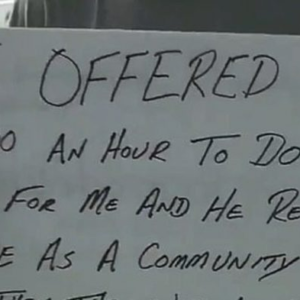 OFFERED
AN HOUR TO DO
FOR ME AND HE
AS A COMMUNITY